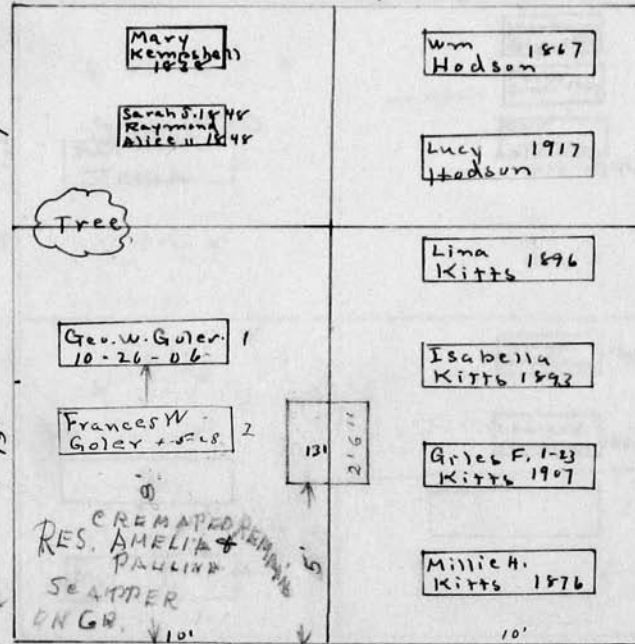 Mary
Kempshall
1838
Sarah S. 1848
Raymond
Alice " 1848
Tree
Geo. W. Goler. 1
10-26-06
Frances W
Goler 2
9'
CREMATED REMAINS
RES. AMELIA &
PAULINE
SCATTER
ON GR.
10'
Wm 1867
Hodson
Lucy 1917
Hodson
Lina 1896
Kitts
Isabella
Kitts 1893
131
2'6"
5'
Giles F. 1-23
Kitts 1907
Millie H.
Kitts 1876
10'